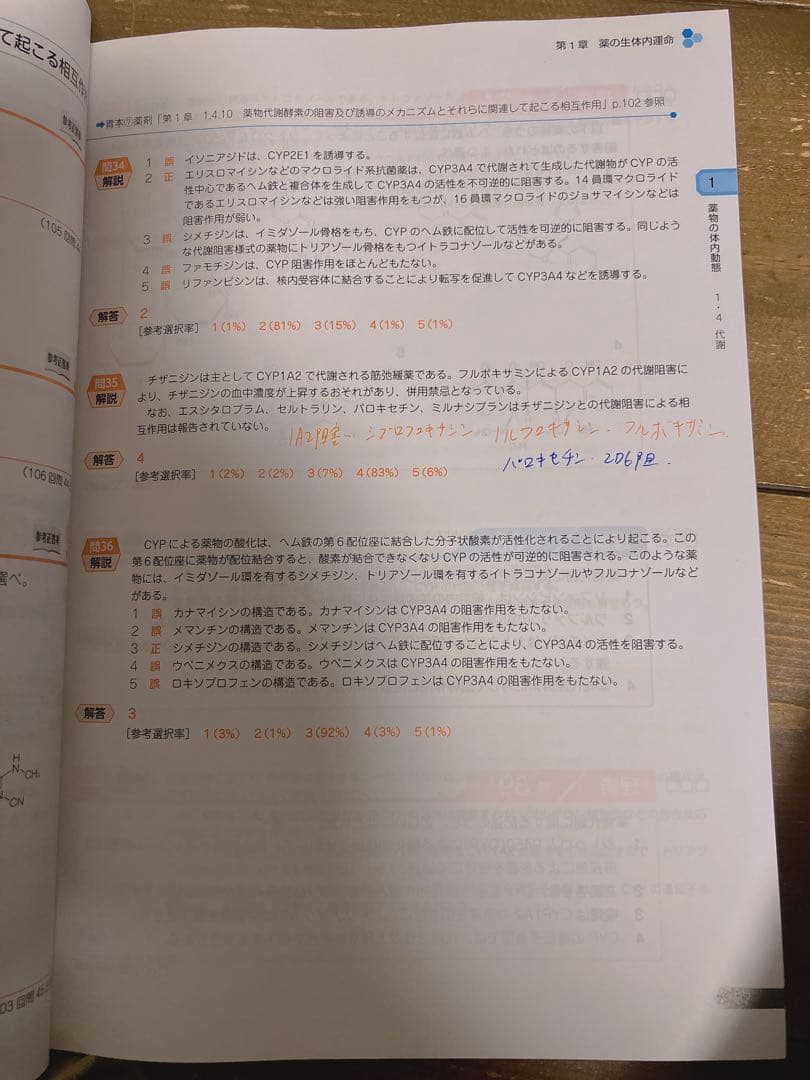 て起こる相互作
参考正答率
(105回問4
参考正答率
(106回問44
参考正答率
選べ。
H
N
CH₃
CN
03回問45
第1章 薬の生体内運命
➡青本⑦薬剤「第1章 1.4.10 薬物代謝酵素の阻害及び誘導のメカニズムとそれらに関連して起こる相互作用」p.102参照
問34 解説
1 誤 イソニアジドは、CYP2E1を誘導する。
2 正 エリスロマイシンなどのマクロライド系抗菌薬は、CYP3A4で代謝されて生成した代謝物がCYPの活
性中心であるヘム鉄と複合体を生成してCYP3A4の活性を不可逆的に阻害する。14員環マクロライド
であるエリスロマイシンなどは強い阻害作用をもつが、16員環マクロライドのジョサマイシンなどは
阻害作用が弱い。
3 誤 シメチジンは、イミダゾール骨格をもち、CYPのヘム鉄に配位して活性を可逆的に阻害する。同じよう
な代謝阻害様式の薬物にトリアゾール骨格をもつイトラコナゾールなどがある。
4 誤 ファモチジンは、CYP阻害作用をほとんどもたない。
5 誤 リファンピシンは、核内受容体に結合することにより転写を促進してCYP3A4などを誘導する。
解答 2
［参考選択率］ 1(1%) 2(81%) 3(15%) 4(1%) 5(1%)
問35 解説
チザニジンは主としてCYP1A2で代謝される筋弛緩薬である。フルボキサミンによるCYP1A2の代謝阻害に
より、チザニジンの血中濃度が上昇するおそれがあり、併用禁忌となっている。
なお、エスシタロプラム、セルトラリン、パロキセチン、ミルナシプランはチザニジンとの代謝阻害による相
互作用は報告されていない。
1A2阻害ー シプロフロキサシン ノルフロキサシン・フルボキサミン
解答 4
パロキセチン・2D6阻.
［参考選択率］ 1(2%) 2(2%) 3(7%) 4(83%) 5(6%)
問36 解説
CYPによる薬物の酸化は、ヘム鉄の第6配位座に結合した分子状酸素が活性化されることにより起こる。この
第6配位座に薬物が配位結合すると、酸素が結合できなくなりCYPの活性が可逆的に阻害される。このような薬
物には、イミダゾール環を有するシメチジン、トリアゾール環を有するイトラコナゾールやフルコナゾールなど
がある。
1 誤 カナマイシンの構造である。カナマイシンはCYP3A4の阻害作用をもたない。
2 誤 メマンチンの構造である。メマンチンはCYP3A4の阻害作用をもたない。
3 正 シメチジンの構造である。シメチジンはヘム鉄に配位することにより、CYP3A4の活性を阻害する。
4 誤 ウベニメクスの構造である。ウベニメクスはCYP3A4の阻害作用をもたない。
5 誤 ロキソプロフェンの構造である。ロキソプロフェンはCYP3A4の阻害作用をもたない。
解答 3
［参考選択率］ 1(3%) 2(1%) 3(92%) 4(3%) 5(1%)
1
薬物の体内動態 1・4 代謝